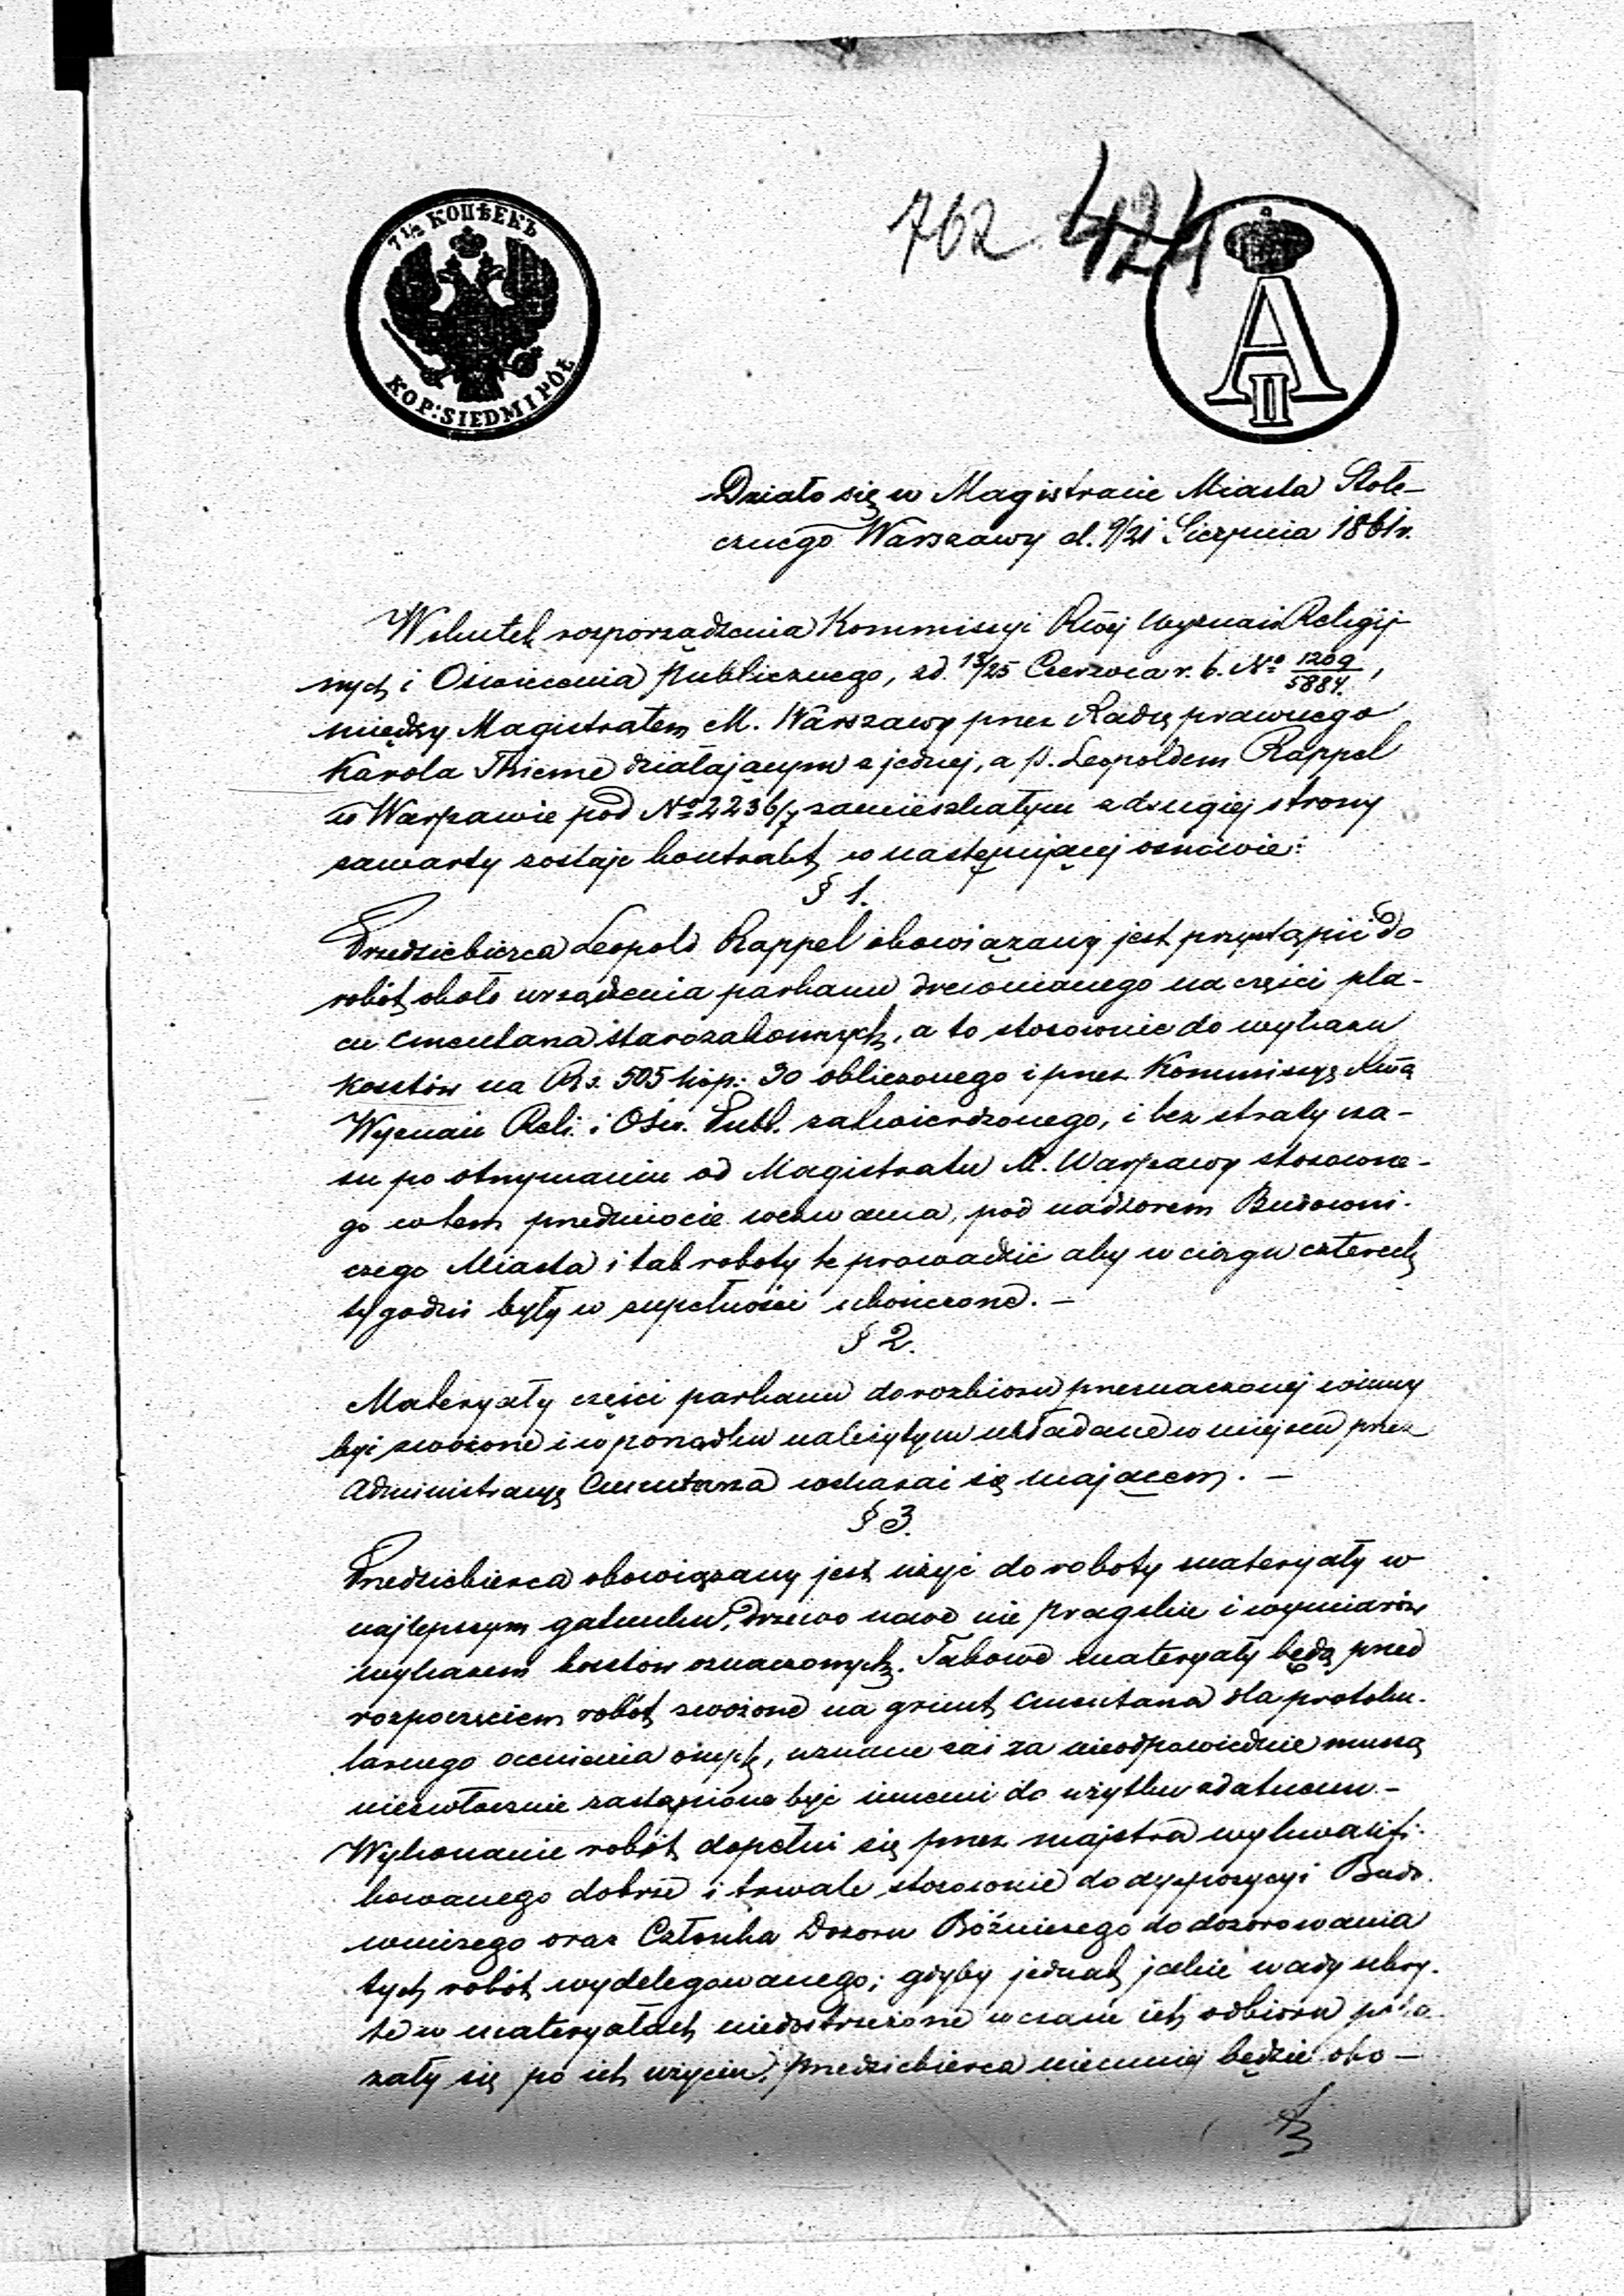 7½ КОПѢЕКЪ
KOP: SIEDM I PÓŁ
762 424
A II
Działo się w Magistracie Miasta Stołe-
cznego Warszawy d. 9/21 Sierpnia 1861 r.
Wskutek rozporządzenia Kommissyi Rdowej Wyznań Religij
nych i Oświecenia Publicznego, z d. 13/25 Czerwca r. b. No 1209/5884,
między Magistratem M. Warszawy przez Radcę prawnego
Karola Thieme działającym z jednej, a p. Leopoldem Rappel
w Warszawie pod No 2236/7 zamieszkałym z drugiej strony
zawarty zostaje kontrakt w następującej osnowie:
§ 1.
Przedsiebierca Leopold Rappel obowiązany jest przystąpić do
robót około urządzenia parkanu drewnianego na części pla-
cu cmentarza starozakonnych, a to stosownie do wykazu
kosztów na Rs. 505 kop: 30 obliczonego i przez Kommissyę Rwą
Wyznań Reli. i Ośw. Publ. zatwierdzonego, i bez straty cza-
su po otrzymaniu od Magistratu M. Warszawy stosowne-
go w tem przedmiocie wezwania, pod nadzorem Budowni-
czego Miasta i tak roboty te prowadzić aby w ciągu czterech
tygodni były w zupełności ukończone. —
§ 2.
Materyały części parkanu do rozbioru przeznaczonej winny
być zwożone i w porządku należytym układane w miejscu przez
Administracyę Cmentarza wskazać się mającem. —
§ 3.
Przedsiebierca obowiązany jest użyć do roboty materyały w
najlepszym gatunku, drzewo nowe nie pragskie i wymiarów
wykazem kosztów oznaczonych. Takowe materyały będą przed
rozpoczęciem robót zwożone na grunt cmentarza dla protoku-
larnego ocenienia onych, uznane zaś za nieodpowiednie muszą
niezwłocznie zastąpione być innemi do użytku zdatnemi. —
Wykonanie robót dopełni się przez majstra wykwalifi-
kowanego dobrze i trwale stosownie do dyspozycyi Budo-
wniczego oraz Członka Dozoru Bóźniczego do dozorowania
tych robót wydelegowanego; gdyby jednak jakie wady ukry-
te w materyałach niedostrzeżone w czasie ich odbioru poka
zały się po ich użyciu, przedsiebierca niemniej będzie obo —